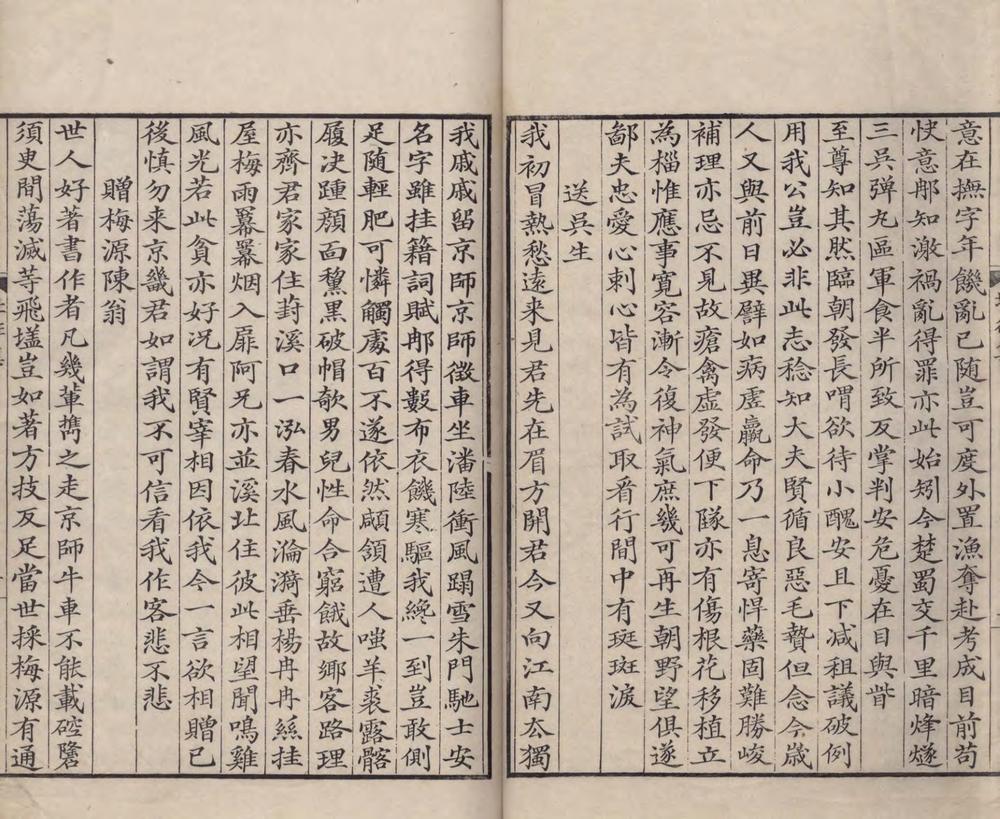 意在撫字年饑亂已随豈可度外置漁奪赴考成目前苟
快意郍知激禍亂得罪亦此始矧今楚蜀交千里暗烽燧
三吳弹丸區軍食半所致反掌判安危憂在目與眥
至尊知其然臨朝發長喟欲待小醜安且下减租議破例
用我公豈必非此志稔知大夫賢循良惡毛贄但念今歲
人又與前日異譬如病虗羸命乃一息寄悍藥固難勝峻
補理亦忌不見故瘡禽虚發便下隊亦有傷根花移植立
為椔惟應事寛容漸令復神氣庶幾可再生朝野望俱遂
鄙夫忠愛心刺心皆有為試取看行間中有斑斑淚
送吳生
我初冒熱愁遠來見君先在眉方開君今又向江南去獨
我戚戚留京師京師徴車坐潘陸衝風蹋雪朱門馳士安
名字雖挂籍詞賦郍得數布衣饑寒驅我纔一到豈敢側
足随輕肥可憐觸處百不遂依然頗頷遭人嗤羊裘露髂
履决踵顏面黧黒破帽欹男兒性命合窮餓故鄉客路理
亦齊君家家住葑溪口一泓春水風淪漪垂楊冉冉絲挂
屋梅雨羃羃烟入扉阿兄亦並溪北住彼此相望聞鳴雞
風光若此貧亦好况有賢宰相因依我今一言欲相贈已
後慎勿來京畿君如謂我不可信看我作客悲不悲
贈梅源陳翁
世人好著書作者凡幾輩擕之走京師牛車不能載硿礲
須臾間蕩滅等飛壒豈如著方技反足當世採梅源有通